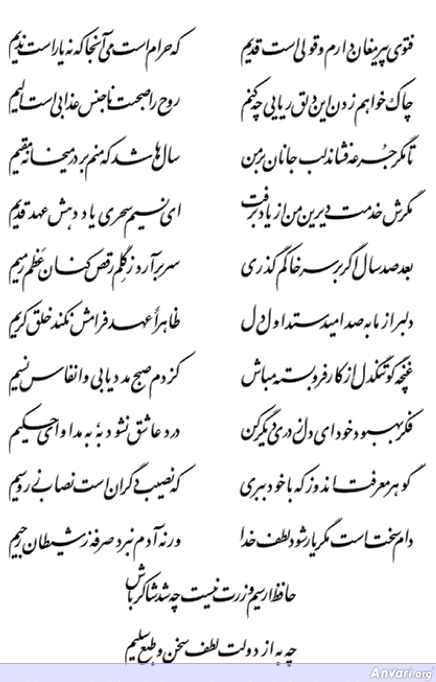 فتوی پیر مغان دارم و قولی است قدیم که حرام است می آنجا که نه یار است ندیم
چاک خواهم زدن این دلق ریایی چه کنم روح را صحبت ناجنس عذابی است الیم
تا مگر جرعه فشاند لب جانان بر من سال‌ها شد که منم بر در میخانه مقیم
مگرش خدمت دیرین من از یاد برفت ای نسیم سحری یاد دهش عهد قدیم
بعد صد سال اگر بر سر خاکم گذری سر برآرد ز گلم رقص کنان عظم رمیم
دلبر از ما به صد امید ستد اول دل ظاهراً عهد فرامش نکند خلق کریم
غنچه گو تنگ دل از کار فروبسته مباش کز دم صبح مدد یابی و انفاس نسیم
فکر بهبود خود ای دل ز دری دیگر کن درد عاشق نشود به به مداوای حکیم
گوهر معرفت اندوز که با خود ببری که نصیب دگران است نصاب زر و سیم
دام سخت است مگر یار شود لطف خدا ور نه آدم نبرد صرفه ز شیطان رجیم
حافظ ار سیم و زرت نیست چه شد شاکر باش
چه به از دولت لطف سخن و طبع سلیم
Anvari.org